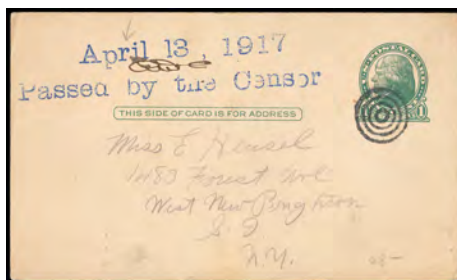 April 13, 1917
Passed by the Censor
U.S. POSTAL CARD
THIS SIDE OF CARD IS FOR ADDRESS
Miss E Hensel
1483 Forest Ave
West New Brighton
S I
N.Y.